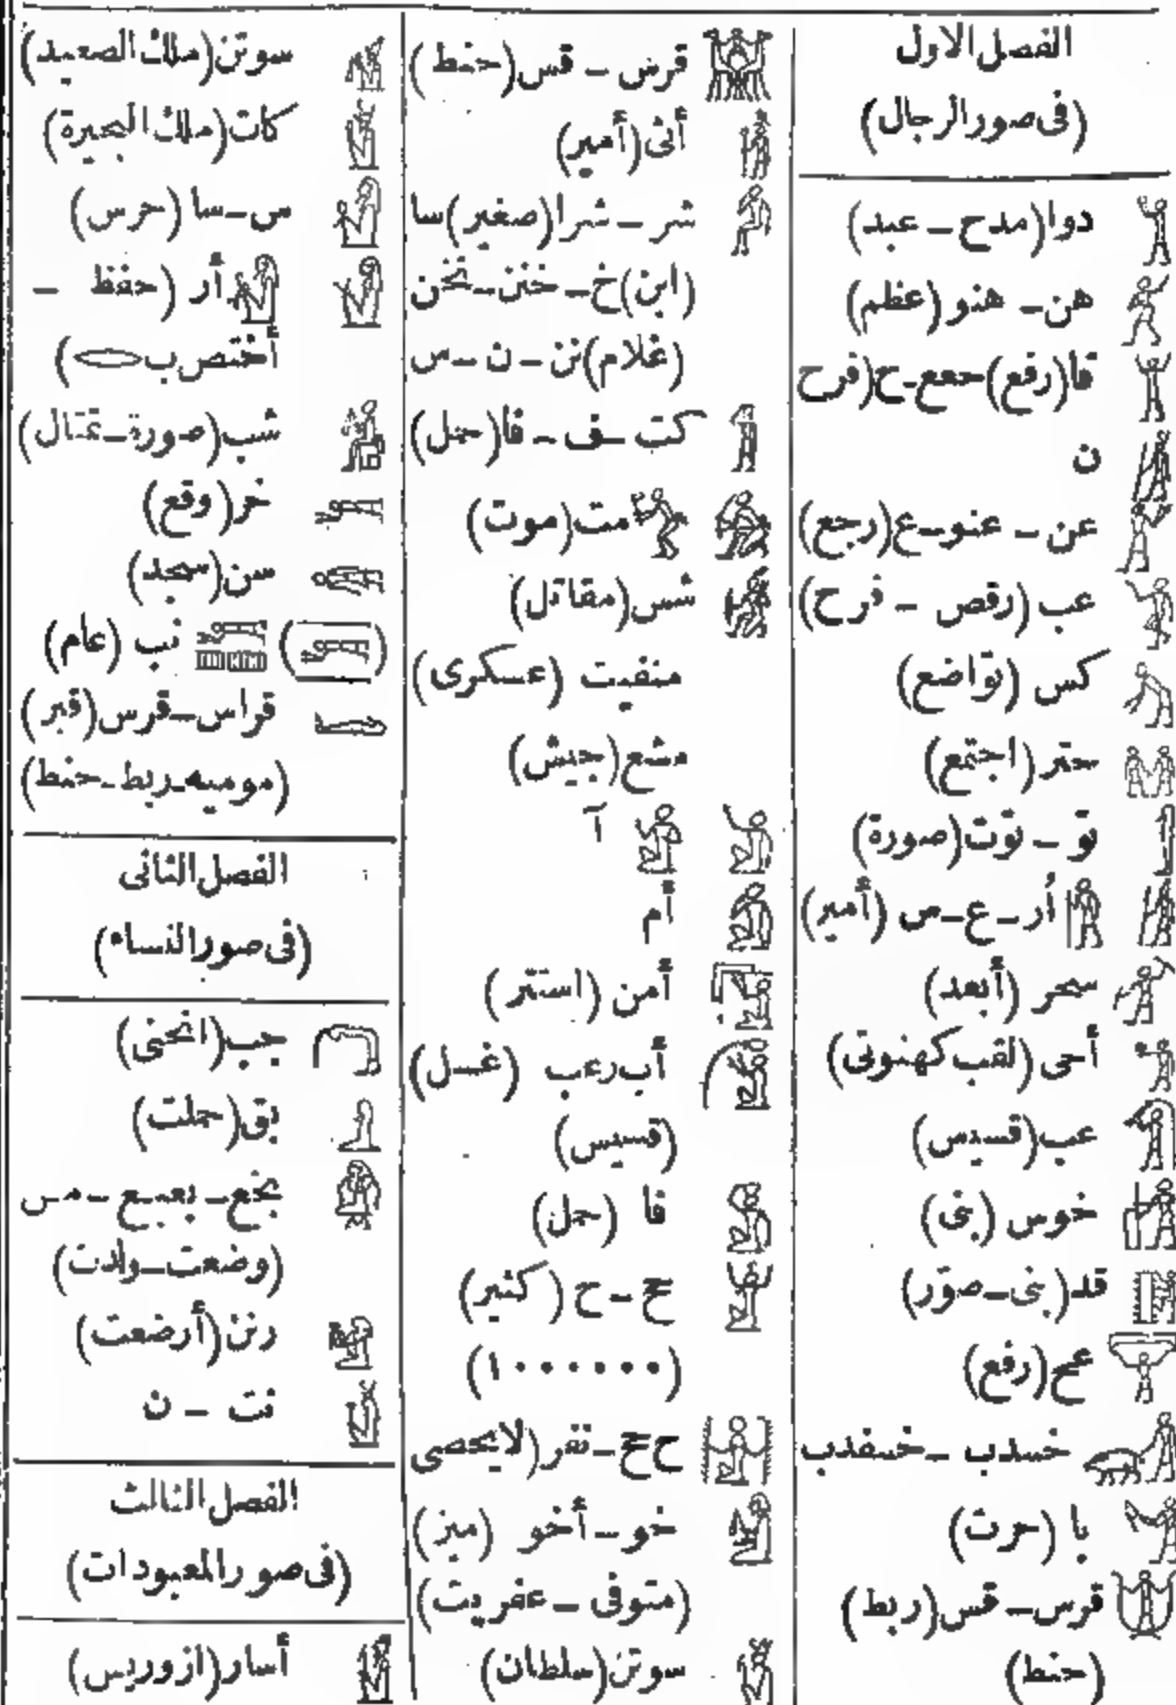 الفصل الاول
(فى صور الرجال)
دوا (مدح - عبد)
هن - هنو (عظم)
قا (رفع) حعع - ح (فرح)
ن
عن - عنو - ع (رجع)
عب (رقص - فرح)
كس (تواضع)
حتر (اجتمع)
تو - توت (صورة)
أر - ع - س (أمير)
سحر (أبعد)
أحى (لقب كهنوتى)
عب (قسيس)
خوس (بنى)
قد (بنى - صوّر)
عح (رفع)
خسدب - خسفدب
با (حرث)
قرس - قس (ربط)
(حنط)
قرس - قس (حنط)
أث (أمير)
شر - شرا (صغير) سا
(ابن) خ - خنن - نخن
(غلام) نن - ن - س
كت - ف - فا (حمل)
مت (موت)
شس (مقاتل)
منفيت (عسكرى)
مشع (جيش)
آ
أم
أمن (استتر)
أب - عب (غسل)
(قسيس)
فا (حمل)
حح - ح (كثير)
(١٠٠٠٠٠٠)
ححح - نفر (لا يحصى
خو - أخو (ميز)
(متوفى - عفريت)
سوتن (سلطان)
سوتن (ملك الصعيد)
كات (ملك البحيرة)
س - سا (حرس)
أر (حفظ -
أختص ب)
شب (صورة - تمثال)
خر (وقع)
سن (سجد)
نب (عام)
قراس - قرس (قبر)
(موميه - ربط - حنط)
الفصل الثانى
(فى صور النساء)
جب (انحنى)
بق (حملت)
بخع - بعبع - مس
(وضعت - ولدت)
رنن (أرضعت)
نت - ث
الفصل الثالث
(فى صور المعبودات)
أسار (ازوريس)